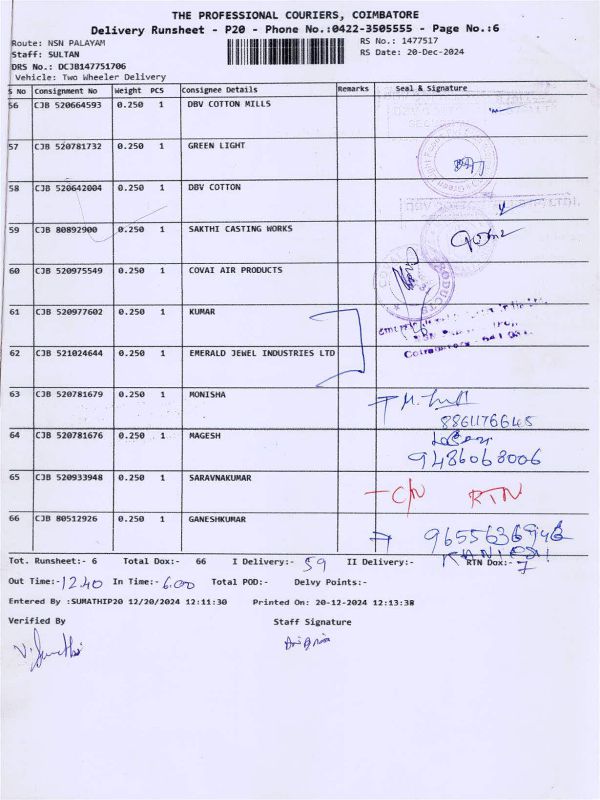 THE PROFESSIONAL COURIERS, COIMBATORE
Delivery Runsheet - P20 - Phone No.:0422-3505555 - Page No.:6
Route: NSN PALAYAM
RS No.: 1477517
Staff: SULTAN
RS Date: 20-Dec-2024
DRS No.: DCJB147751706
Vehicle: Two Wheeler Delivery
S No Consignment No Weight PCS Consignee Details Remarks Seal & Signature
56 CJB 520664593 0.250 1 DBV COTTON MILLS
57 CJB 520781732 0.250 1 GREEN LIGHT
58 CJB 520642004 0.250 1 DBV COTTON
59 CJB 80892900 0.250 1 SAKTHI CASTING WORKS
60 CJB 520975549 0.250 1 COVAI AIR PRODUCTS
61 CJB 520977602 0.250 1 KUMAR
62 CJB 521024644 0.250 1 EMERALD JEWEL INDUSTRIES LTD
63 CJB 520781679 0.250 1 MONISHA
8861176645
64 CJB 520781676 0.250 1 MAGESH
9486068006
65 CJB 520933948 0.250 1 SARAVNAKUMAR C/N RTN
66 CJB 80512926 0.250 1 GANESHKUMAR
Tot. Runsheet:- 6 Total Dox:- 66 I Delivery:- 59 II Delivery:- RTN Dox:- 7
Out Time:- 12.40 In Time:- 6.00 Total POD:- Delvy Points:-
Entered By :SUMATHIP20 12/20/2024 12:11:30 Printed On: 20-12-2024 12:13:38
Verified By Staff Signature